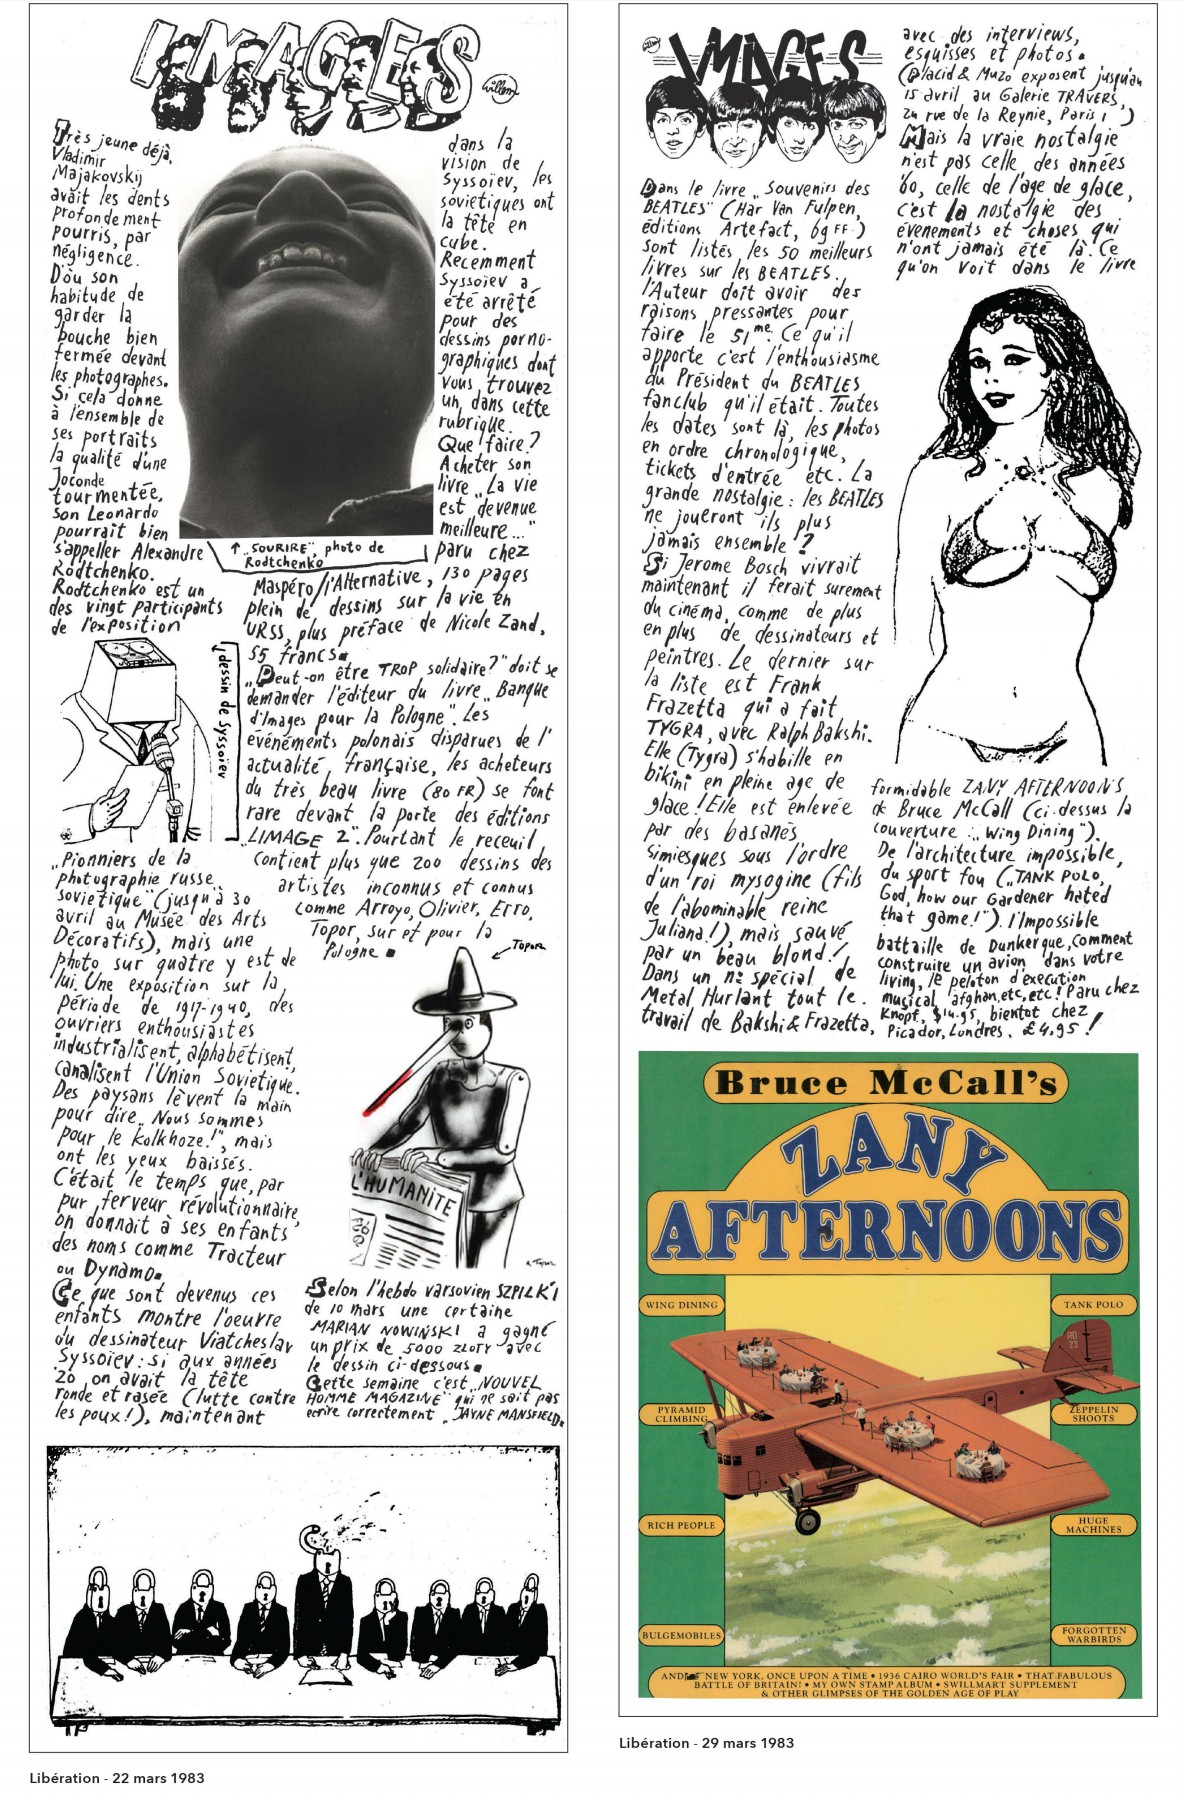 IMAGES
willem
Très jeune déjà,
Vladimir
Majakovskij
avait les dents
profondement
pourris, par
négligence.
D'où son
habitude de
garder la
bouche bien
fermée devant
les photographes.
Si cela donne
à l'ensemble de
ses portraits
la qualité d'une
Joconde
tourmentée,
son Leonardo
pourrait bien
s'appeller Alexandre
Rodtchenko.
Rodtchenko est un
des vingt participants
de l'exposition
↑ „SOURIRE", photo de
Rodtchenko
↓ dessin de Syssoiev
„Pionniers de la
photographie russe
soviétique" (jusqu'à 30
avril au Musée des Arts
Décoratifs), mais une
photo sur quatre y est de
lui. Une exposition sur la
période de 1917-1940, des
ouvriers enthousiastes
industrialisent, alphabétisent,
canalisent l'Union Sovietique.
Des paysans lèvent la main
pour dire „Nous sommes
pour le kolkhoze!", mais
ont les yeux baissés.
C'était le temps que, par
pur ferveur révolutionnaire,
on donnait à ses enfants
des noms comme Tracteur
ou Dynamo.
Ce que sont devenus ces
enfants montre l'oeuvre
du dessinateur Viatcheslav
Syssoiev: si aux années
20 on avait la tête
ronde et rasée (lutte contre
les poux!), maintenant
dans la
vision de
Syssoïev, les
soviétiques ont
la tête en
cube.
Recemment
Syssoïev a
été arrêté
pour des
dessins porno-
graphiques dont
vous trouvez
un dans cette
rubrique.
Que faire?
Acheter son
livre „La vie
est devenue
meilleure..."
paru chez
Maspéro/l'Alternative, 130 pages
plein de dessins sur la vie en
URSS, plus préface de Nicole Zand,
55 francs.
„Peut-on être TROP solidaire?" doit se
demander l'éditeur du livre „Banque
d'Images pour la Pologne". Les
événéments polonais disparues de l'
actualité française, les acheteurs
du très beau livre (80 FR) se font
rare devant la porte des éditions
„LIMAGE 2". Pourtant le receuil
contient plus que 200 dessins des
artistes inconnus et connus
comme Arroyo, Olivier, Erro,
Topor, sur et pour la
Pologne
TOPOR
L'HUMANITE
R. Topor
Selon l'hebdo varsovien SZPILKI
de 10 mars une certaine
MARIAN NOWIŃSKI a gagné
un prix de 5000 ZLOTY avec
le dessin ci-dessous.
Cette semaine c'est „NOUVEL
HOMME MAGAZINE" qui ne sait pas
ecrire correctement „JAYNE MANSFIELD.
Libération - 22 mars 1983
willem
IMAGES
Dans le livre „Souvenirs des
BEATLES" (Har Van Fulpen,
éditions Artefact, 69 FF.)
sont listés les 50 meilleurs
livres sur les BEATLES.
l'Auteur doit avoir des
raisons pressantes pour
faire le 51me. Ce qu'il
apporte c'est l'enthousiasme
du Président du BEATLES
fanclub qu'il était. Toutes
les dates sont là, les photos
en ordre chronologique,
tickets d'entrée etc. La
grande nostalgie: les BEATLES
ne joueront ils plus
jamais ensemble?
Si Jerome Bosch vivrait
maintenant il ferait surement
du cinéma, comme de plus
en plus de dessinateurs et
peintres. Le dernier sur
la liste est Frank
Frazetta qui a fait
TYGRA, avec Ralph Bakshi.
Elle (Tygra) s'habille en
bikini en pleine age de
glace! Elle est enlevée
par des basanés
simiesques sous l'ordre
d'un roi mysogine (fils
de l'abominable reine
Juliana!), mais sauvé
par un beau blond!
Dans un no spécial de
Metal Hurlant tout le
travail de Bakshi & Frazetta,
avec des interviews,
esquisses et photos.
(Placid & Muzo exposent jusqu'au
15 avril au Galerie TRAVERS,
24 rue de la Reynie, Paris 1)
Mais la vraie nostalgie
n'est pas celle des années
'60, celle de l'age de glace,
c'est la nostalgie des
évenements et choses qui
n'ont jamais été là. Ce
qu'on voit dans le livre
formidable ZANY AFTERNOONS
de Bruce McCall (ci-dessus la
couverture: „Wing Dining").
De l'architecture impossible,
du sport fou („TANK POLO,
God, how our Gardener hated
that game!"). l'Impossible
battaille de Dunkerque, Comment
construire un avion dans votre
living, le peloton d'exécution
musical afghan, etc, etc! Paru chez
Knopf, $14.95, bientot chez
Picador, Londres. £4,95!
Bruce McCall's
ZANY
AFTERNOONS
WING DINING
TANK POLO
RO
23
PYRAMID
CLIMBING
ZEPPELIN
SHOOTS
RICH PEOPLE
HUGE
MACHINES
BULGEMOBILES
FORGOTTEN
WARBIRDS
NEW YORK, ONCE UPON A TIME • 1936 CAIRO WORLD'S FAIR • THAT FABULOUS
BATTLE OF BRITAIN! • MY OWN STAMP ALBUM • SWILLMART SUPPLEMENT
& OTHER GLIMPSES OF THE GOLDEN AGE OF PLAY
Libération - 29 mars 1983